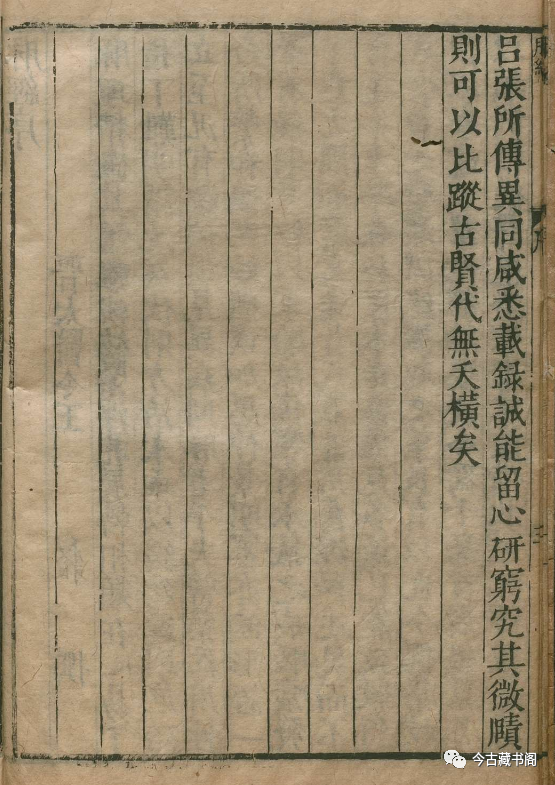 吕張所傳異同咸悉載録誠能留心研窮究其微賾
則可以比蹤古賢代無夭横矣
今古藏书阁